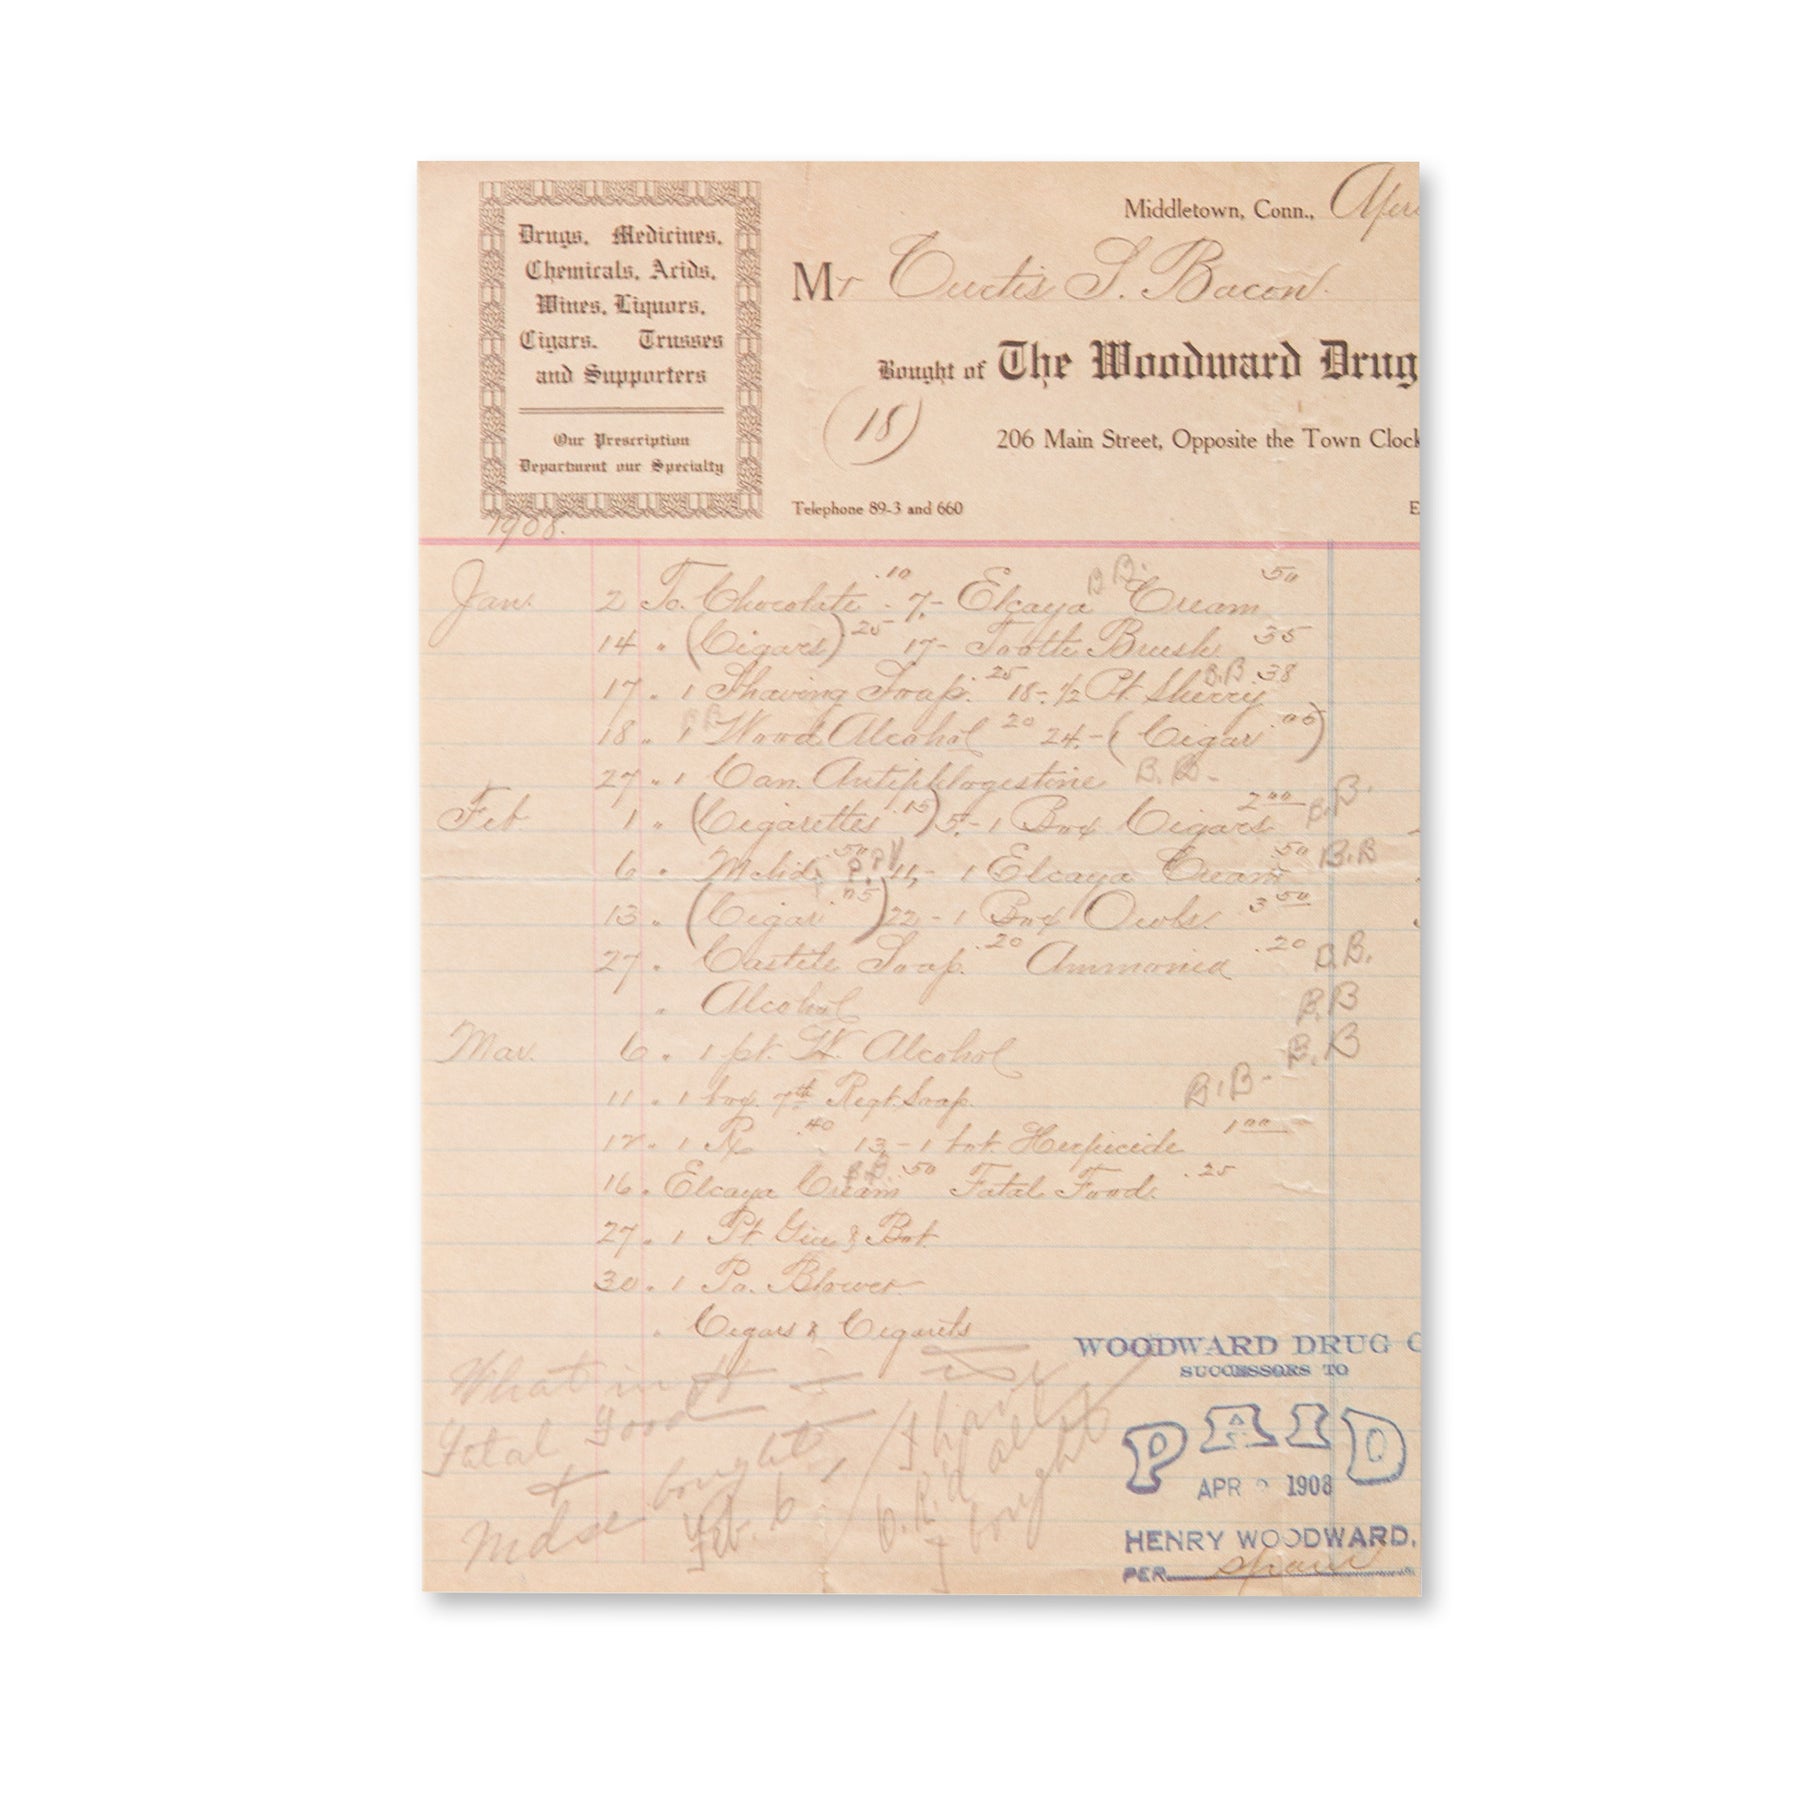 Drugs, Medicines,
Chemicals, Acids,
Wines, Liquors,
Cigars. Trusses
and Supporters
Our Prescription
Department our Specialty
Middletown, Conn., Apri
Mr Curtis S. Bacon.
Bought of The Woodward Drug
(18)
206 Main Street, Opposite the Town Clock
Telephone 89-3 and 660 E
1908.
Jan. 2 To. Chocolate .10 7.- Elcaya B B. Cream 50
14 " (Cigars) 25 17- Tooth Brush. 35
17 " 1 Shaving Soap. 25 18- 1/2 Pt Sherry B.B .38
18 " 1 Wood Alcohol 20 24.- ( Cigar .05)
27 " 1 Can. Antiphlogestine B.B.-
Feb 1 " (Cigarettes .15) 5.- 1 Box Cigars 2 00 B.B.
6 " .50 11,- 1 Elcaya Cream .50 B.B
13 " (Cigar .05) 22 - 1 Box Owls. 3 50
27 " Castile Soap. .20 Ammonia .20 B.B.
" Alcohol B.B
Mar. 6 " 1 pt. W. Alcohol B.B
11 " 1 box. 7th Regt. Soap. B.B-
12 " 1 Rx .40 13,- 1 bot. Herpicide 1 00
16 " Elcaya Cream B.B. .50 Fatal Food. .25
27 " 1 Pt Gin & Bot
30 " 1 Po. Blower
" Cigars & Cigarets
What is
Fatal Food
+ bought
Mdse Feb. 6
I have
O.K.'d all
I bought
WOODWARD DRUG C
SUCCESSORS TO
PAID
APR 1908
HENRY WOODWARD,
PER